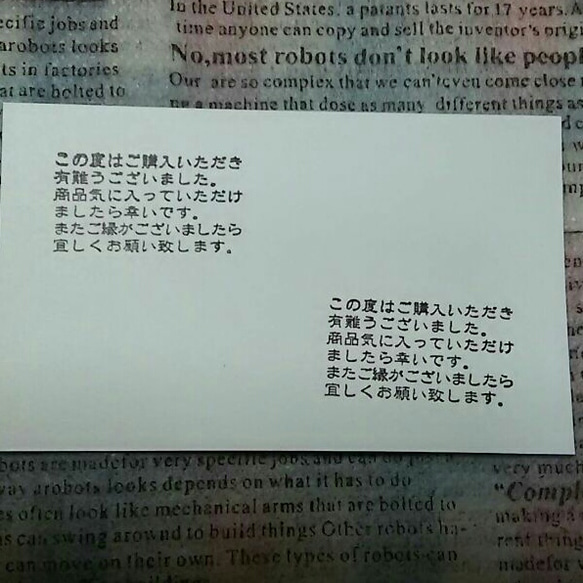 In the United States, a patants lasts for 17 years. A
time anyone can copy and sell the inventor's origi
No,most robots don't look like peopl
Our are so complex that we can'tcven come close
a machine that dose as many different things as
ecific jobs and
arobots looks
ts in factories
at are bolted to
この度はご購入いただき
有難うございました。
商品気に入っていただけ
ましたら幸いです。
またご縁がございましたら
宜しくお願い致します。
この度はご購入いただき
有難うございました。
商品気に入っていただけ
ましたら幸いです。
またご縁がございましたら
宜しくお願い致します。
bots are madefor very specific jobs and can do
way arobots looks depends on what it has to do
es often look like mechanical arms that are bolted to
s can swing arownd to build things Other robots ha-
can move on their own. These types of robots can
very much
"Compl
making a
rent thing
madefor